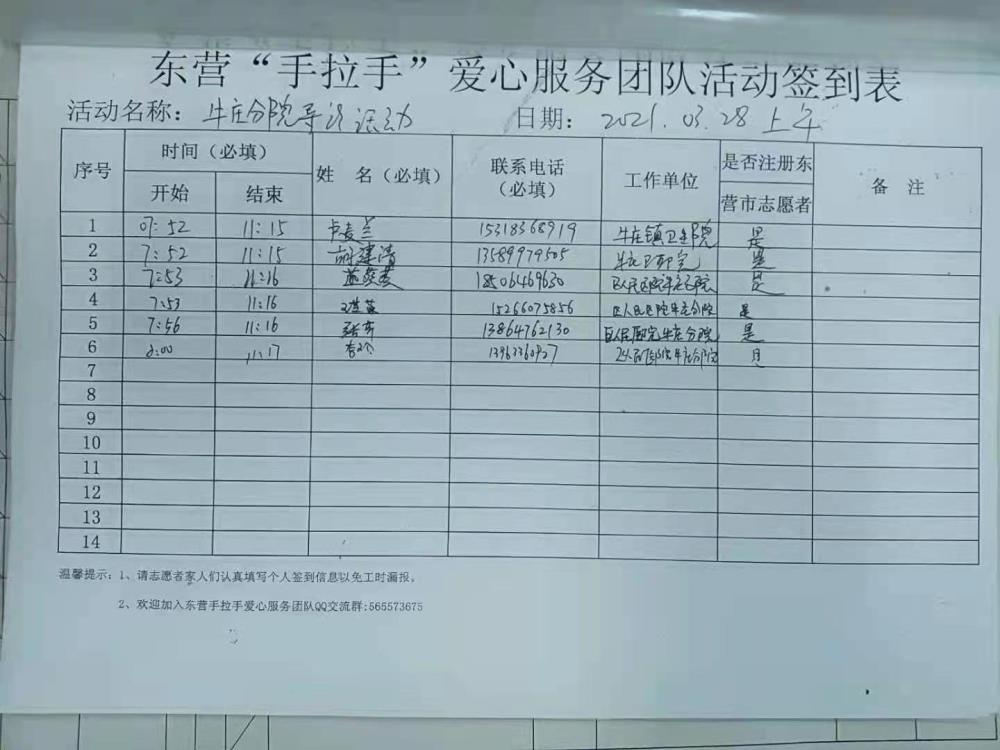 东营“手拉手”爱心服务团队活动签到表
活动名称：牛庄分院导诊活动 日期：2021.03.28上午
序号 时间（必填） 姓 名（必填） 联系电话（必填） 工作单位 是否注册东营市志愿者 备 注
开始 结束
1 07:52 11:15 卢麦兰 15318368919 牛庄镇卫生院 是
2 7:52 11:15 胡建清 13589979505 牛庄卫 是
3 7:53 11:16 18506469630 区人民医院牛庄分院 是
4 7:53 11:16 15266075856 区人民医院牛庄分院 是
5 7:56 11:16 13864762130 区人民医院牛庄分院 是
6 8:00 11:17 区人民医院牛庄分院
7
8
9
10
11
12
13
14
温馨提示：1、请志愿者家人们认真填写个人签到信息以免工时漏报。
2、欢迎加入东营手拉手爱心服务团队QQ交流群:565573675